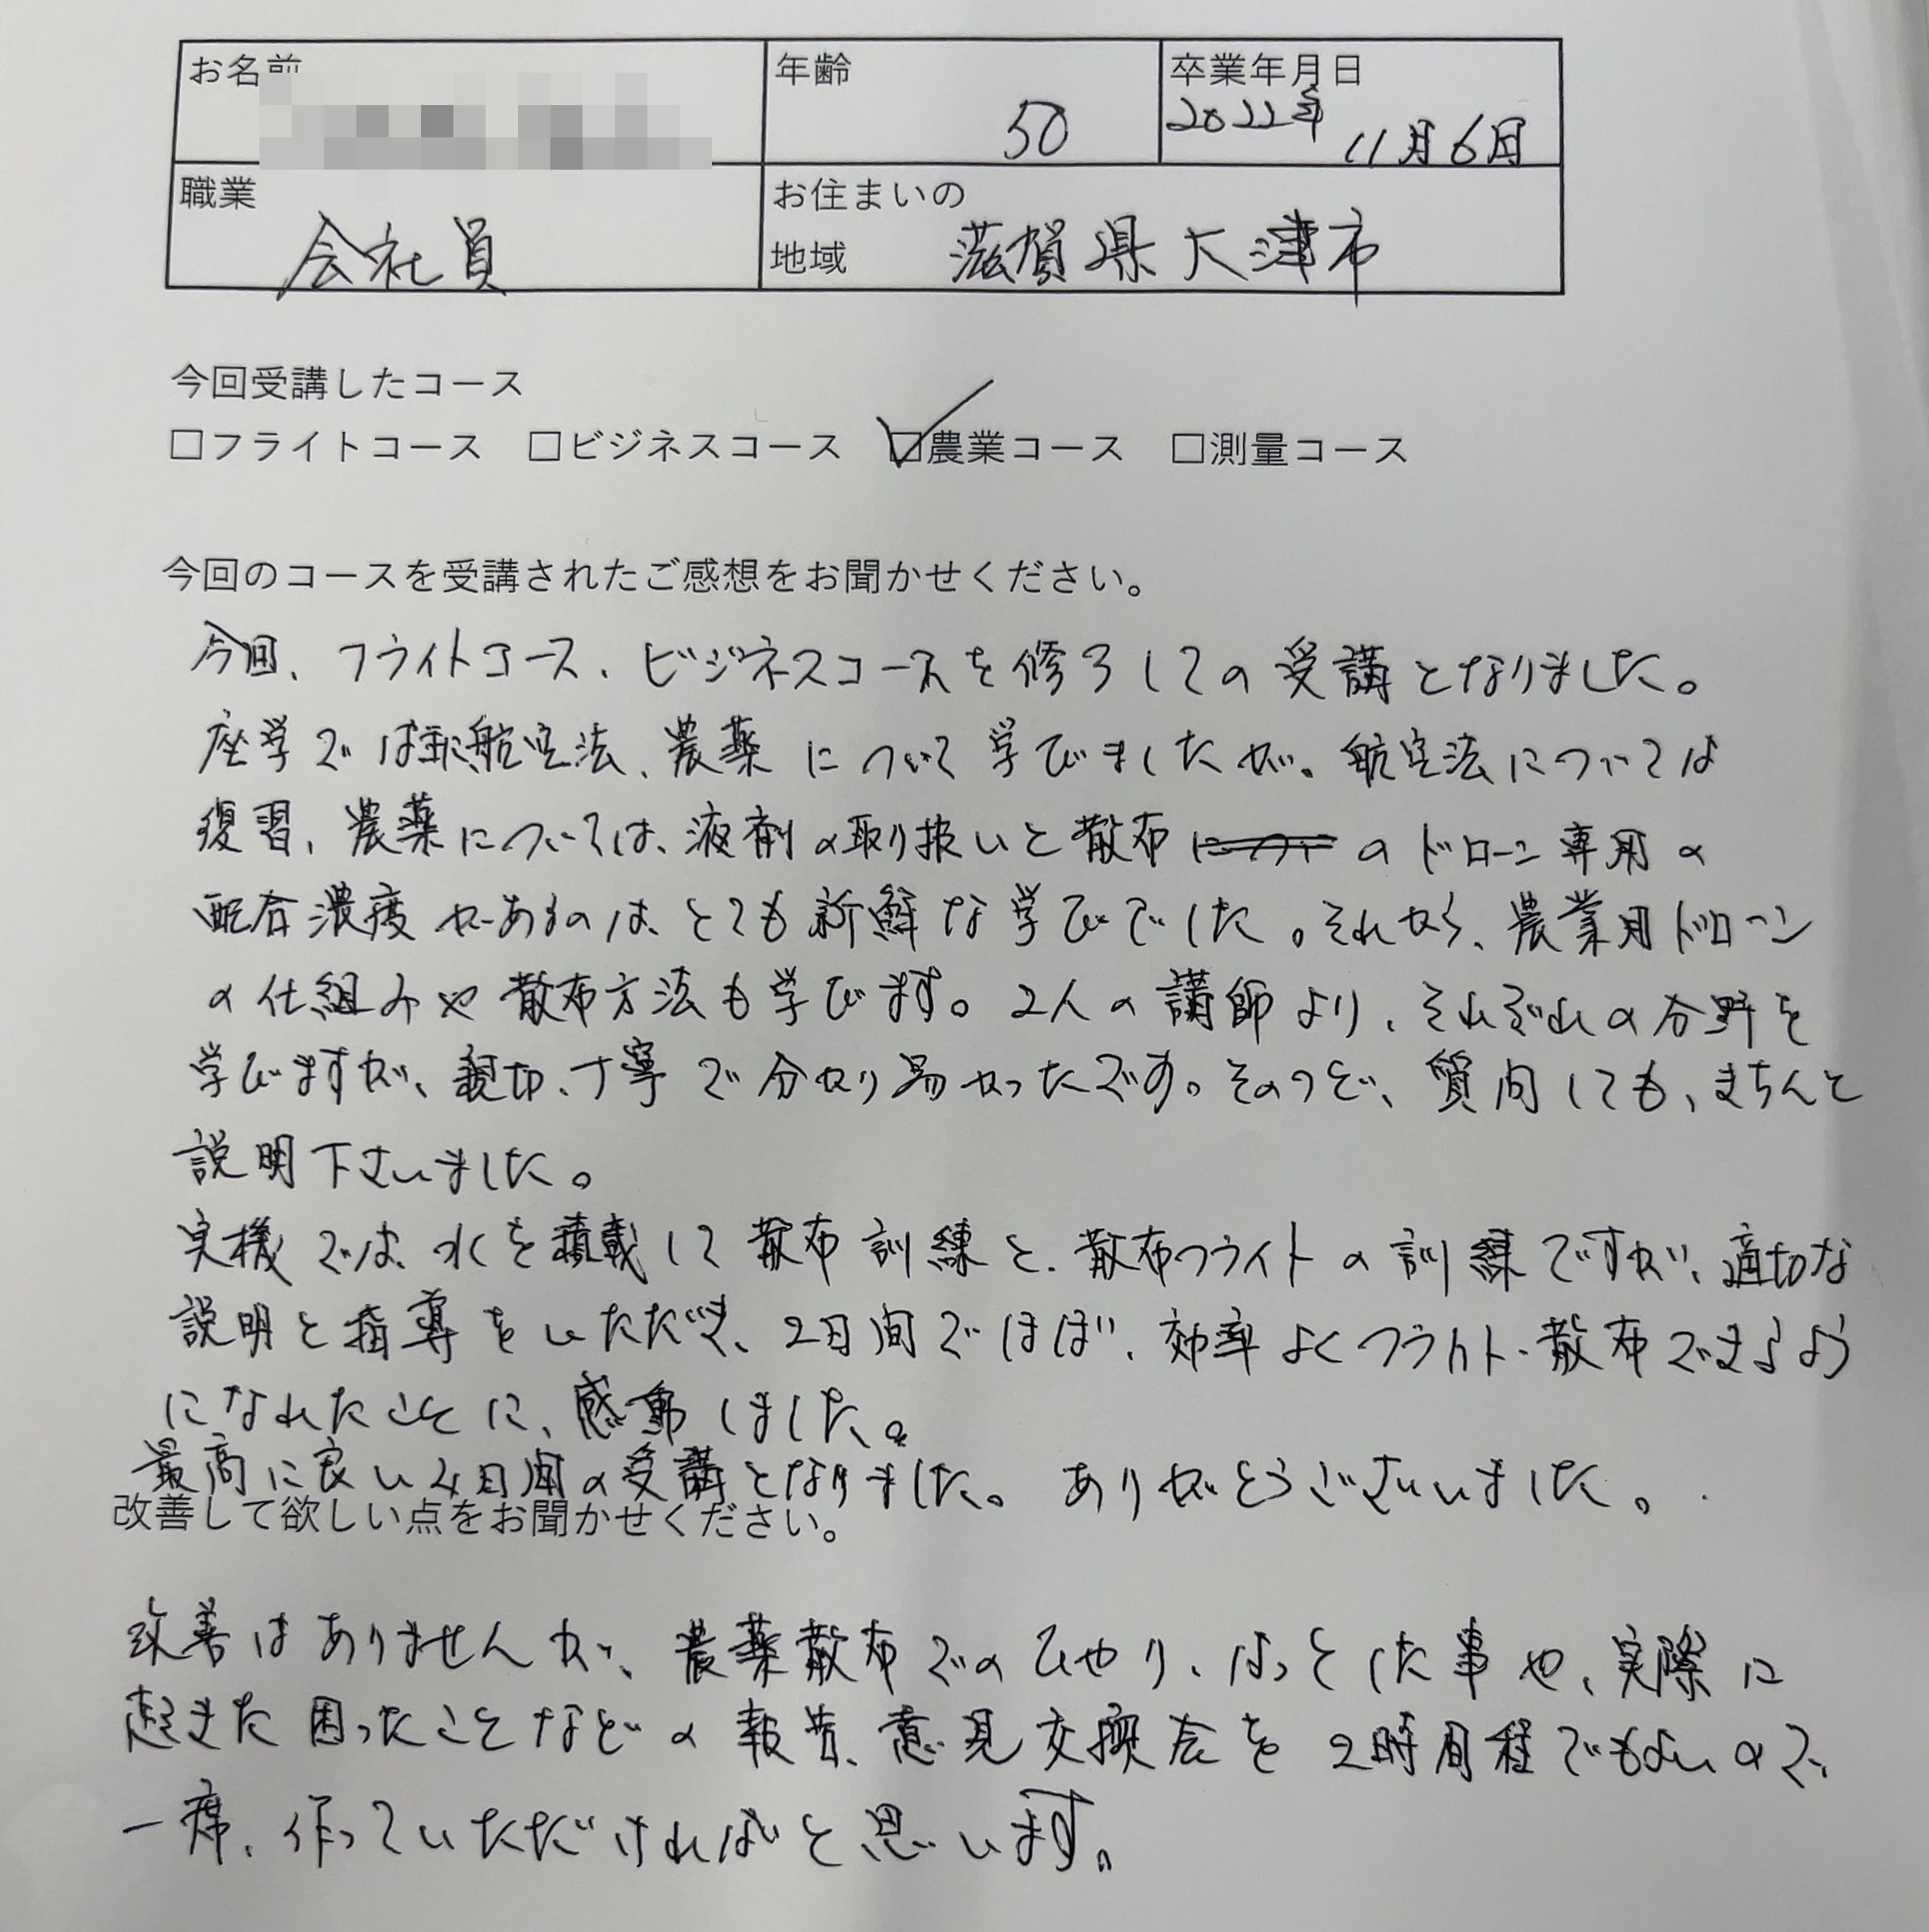 お名前
年齢
50
卒業年月日
2022年
11月6日
職業
会社員
お住まいの
地域
滋賀県大津市
今回受講したコース
□フライトコース □ビジネスコース ☑農業コース □測量コース
今回のコースを受講されたご感想をお聞かせください。
今回、フライトコース、ビジネスコースを修了しての受講となりました。
座学では航空法、農薬について学びましたが。航空法については
復習、農薬については、液剤の取り扱いと散布のドローン専用の
配合濃度があるのは、とても新鮮な学びでした。それから、農業用ドローン
の仕組みや散布方法も学びます。2人の講師より、それぞれの分野を
学びますが、親切、丁寧で分かり易かったです。そのつど、質問しても、きちんと
説明下さいました。
実機では、水を積載して散布訓練と、散布フライトの訓練ですが、適切な
説明と指導をいただき、2日間でほぼ、効率よくフライト・散布できるよう
になれたことに、感動しました。
最高に良い4日間の受講となりました。ありがとうございました。
改善して欲しい点をお聞かせください。
改善はありませんが、農薬散布でのひやり、はっとした事や、実際に
起きた困ったことなどの報告、意見交換会を2時間程でもよいので、
一席、作っていただければと思います。